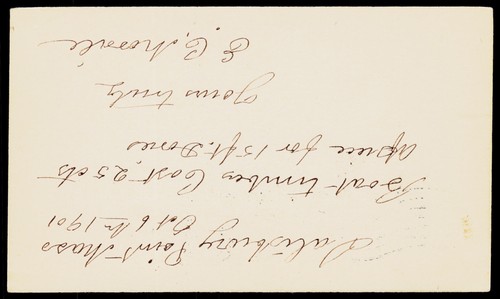 Salisbury Point Mass
Oct 6th 1901
Boat timbers Cost 25 cts
apiece for 15 ft. Dories
Yours truly
E. C.